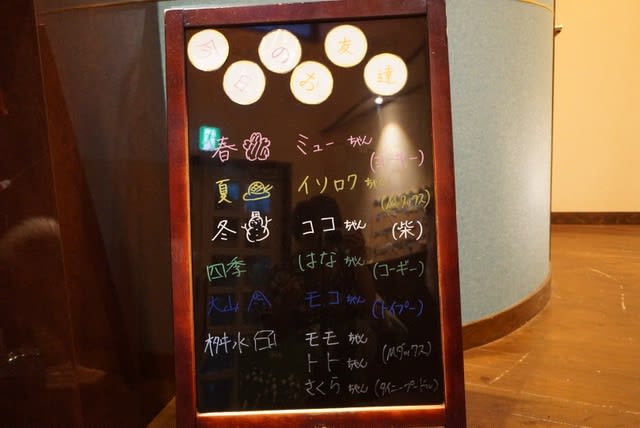 今日のお友達
春 ミューちゃん
夏 イソロクちゃん (Mダックス)
冬 ココちゃん (柴)
四季 はなちゃん (コーギー)
大山 モコちゃん (トイプー)
桝水 モモちゃん (Mダックス)
トトちゃん
さくらちゃん (タイニープードル)